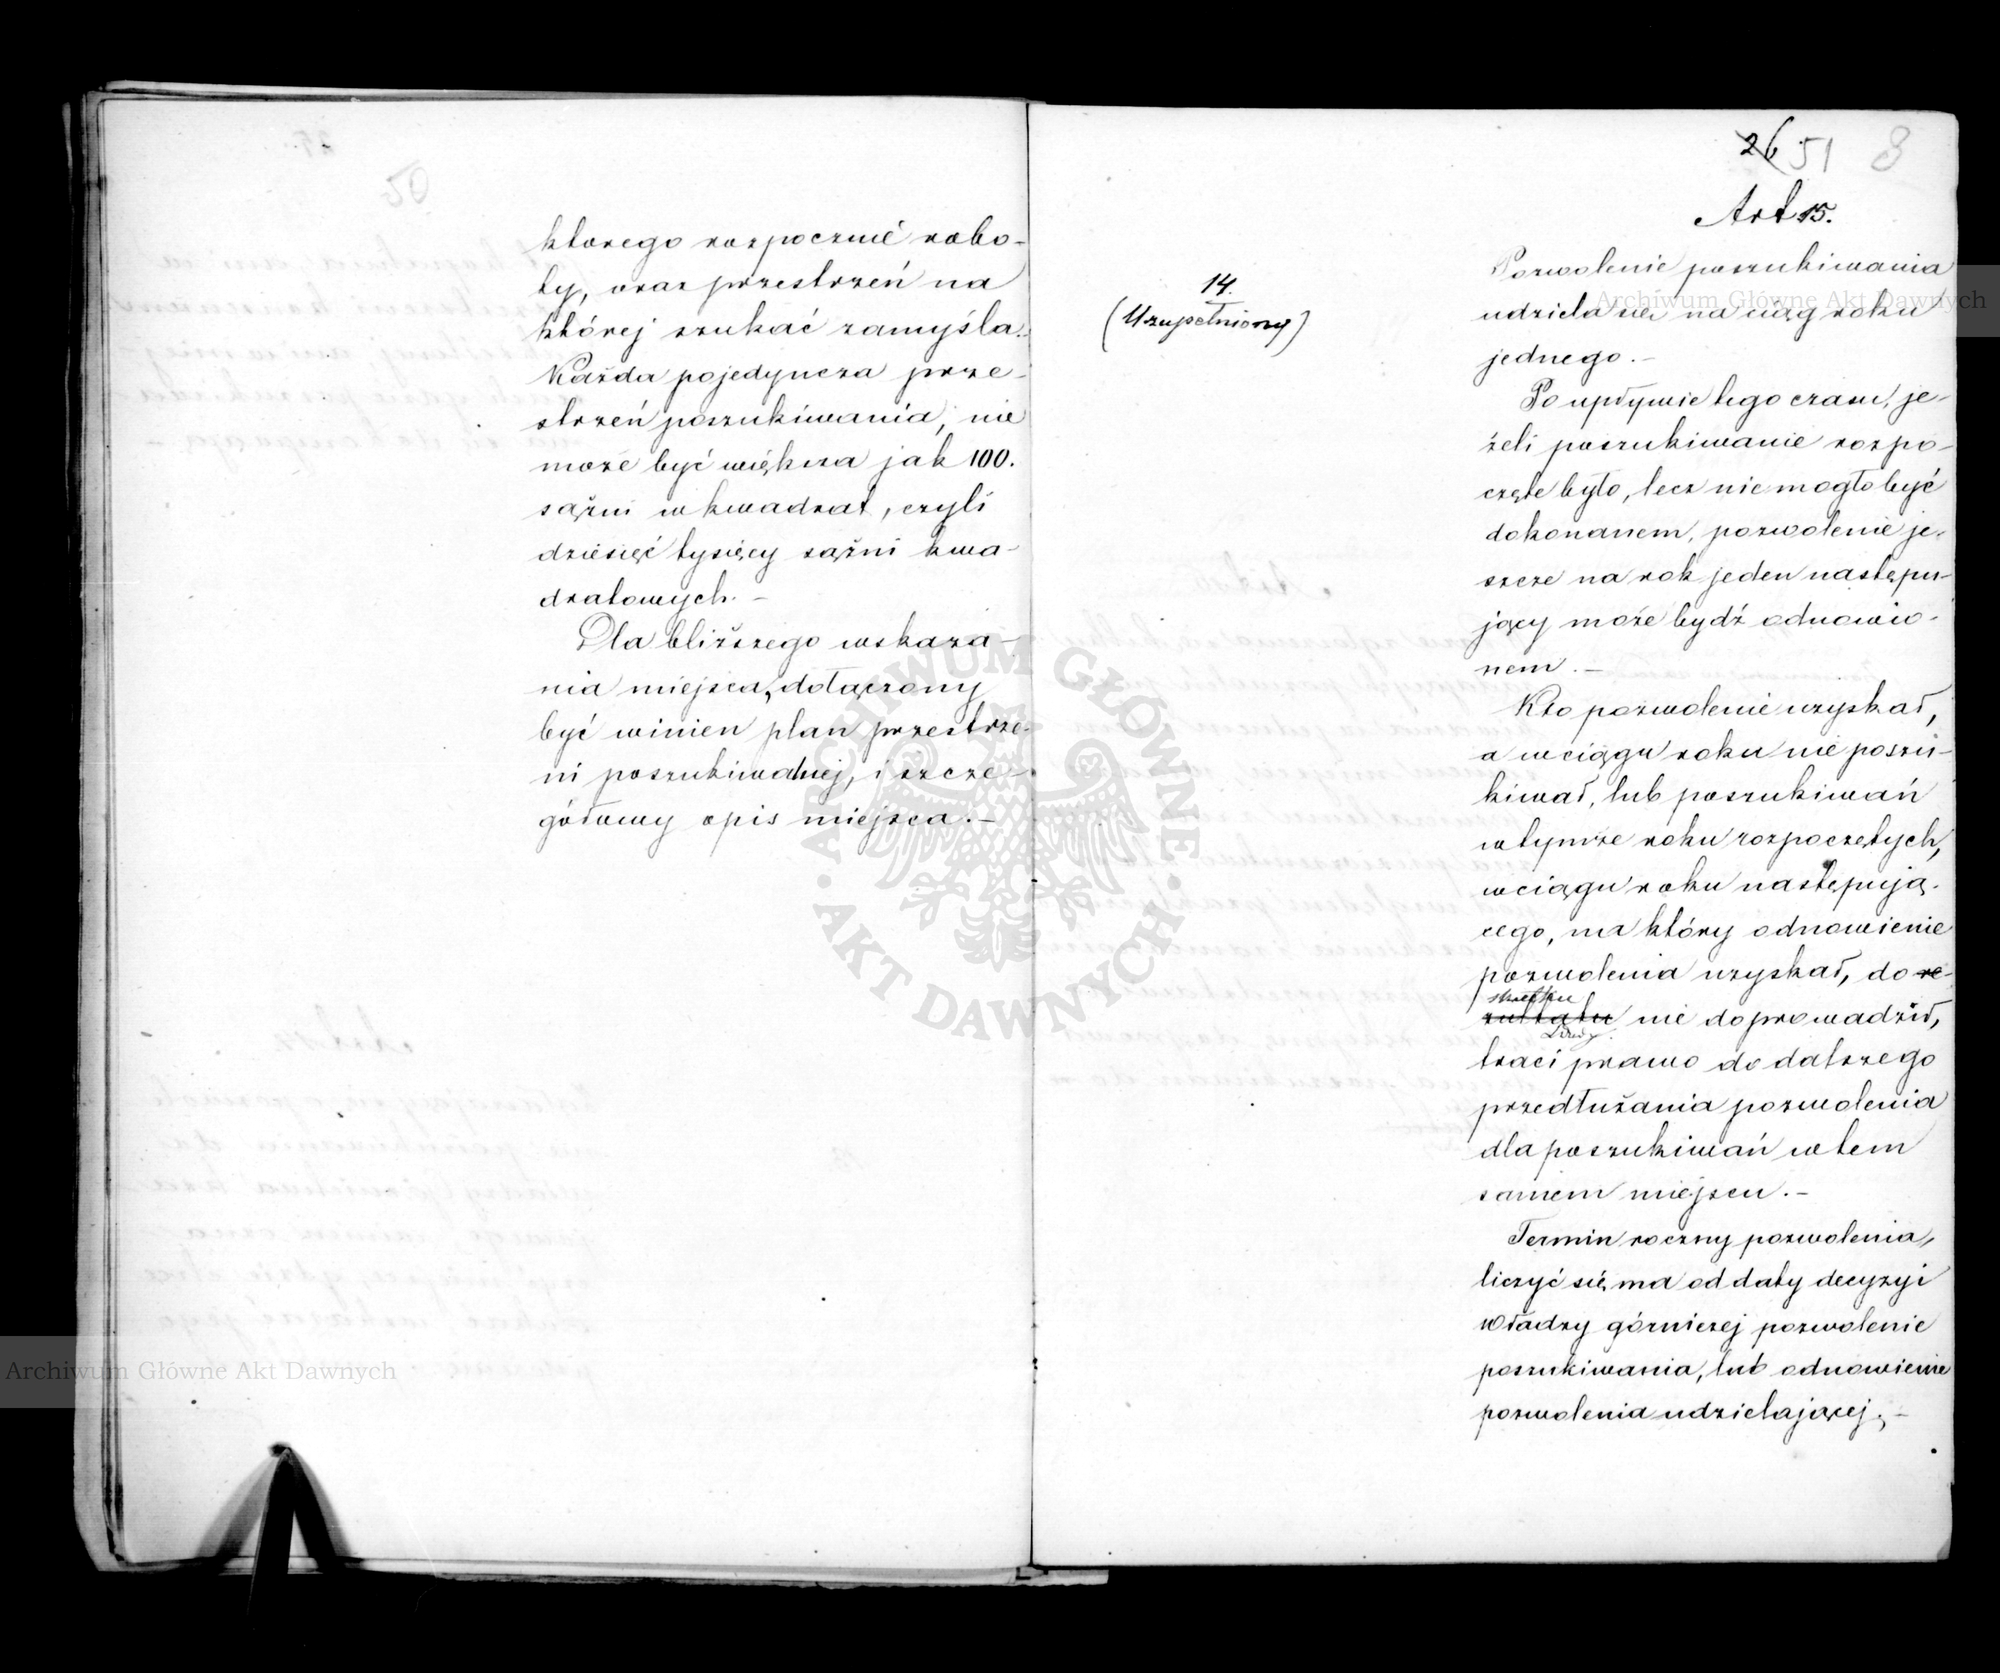 50
którego rozpocznie robo-
ty, oraz przestrzeń na
której szukać zamyśla.
Każda pojedyncza prze-
strzeń poszukiwania, nie
może być większa jak 100.
sążni w kwadrat, czyli
dziesięć tysięcy sążni kwa-
dratowych. -
Dla bliższego wskaza-
nia miejsca, dołączony
być winien plan przestrze-
ni poszukiwalnej, i szcze-
gółowy opis miejsca. -
26 51 8
Art 15.
14.
(Uzupełniony)
Pozwolenie poszukiwania
udziela się na ciąg roku
jednego. -
Po upływie tego czasu, je-
żeli poszukiwanie rozpo-
częte było, lecz nie mogło być
dokonanem, pozwolenie je-
szcze na rok jeden następu-
jący może bydź odnowio-
nem. -
Kto pozwolenie uzyskał,
a w ciągu roku nie poszu-
kiwał, lub poszukiwań
w tymże roku rozpoczętych,
w ciągu roku następują-
cego, na który odnowienie
pozwolenia uzyskał, do re-
skutku
zultatu nie doprowadził,
traci prawo do dalszego
przedłużania pozwolenia
dla poszukiwań w tem
samem miejscu. -
Termin roczny pozwolenia,
liczyć się ma od daty decyzyi
władzy górniczej pozwolenie
poszukiwania, lub odnowienie
pozwolenia udzielającej. -
Archiwum Główne Akt Dawnych
Archiwum Główne Akt Dawnych
ARCHIWUM GŁÓWNE • AKT DAWNYCH •